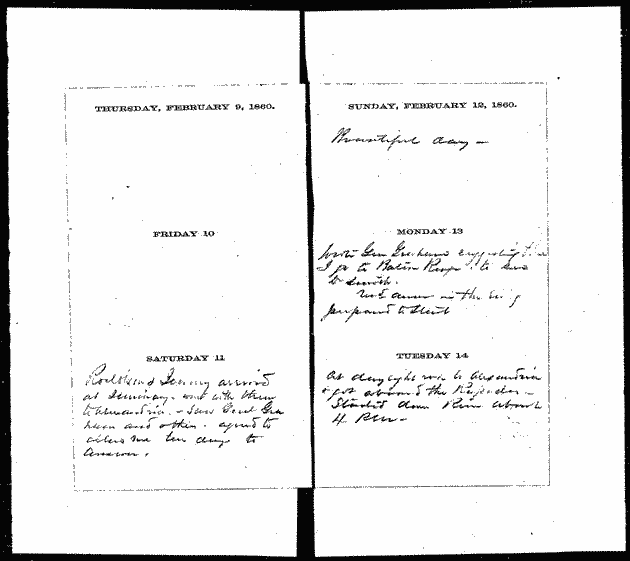 THURSDAY, FEBRUARY 9, 1860.
FRIDAY 10
SATURDAY 11
arrived
at Seminary. went with them
to Alexandria. - Saw Genl Gra
ham and others. agreed to
allow me ten days to
answer.
SUNDAY, FEBRUARY 12, 1860.
Beautiful day -
MONDAY 13
Wrote Gen Graham suggesting that
I go to Baton Rouge to see
prepared to start
TUESDAY 14
At daylight rode to Alexandria
& got aboard the
Started down River about
4 PM -